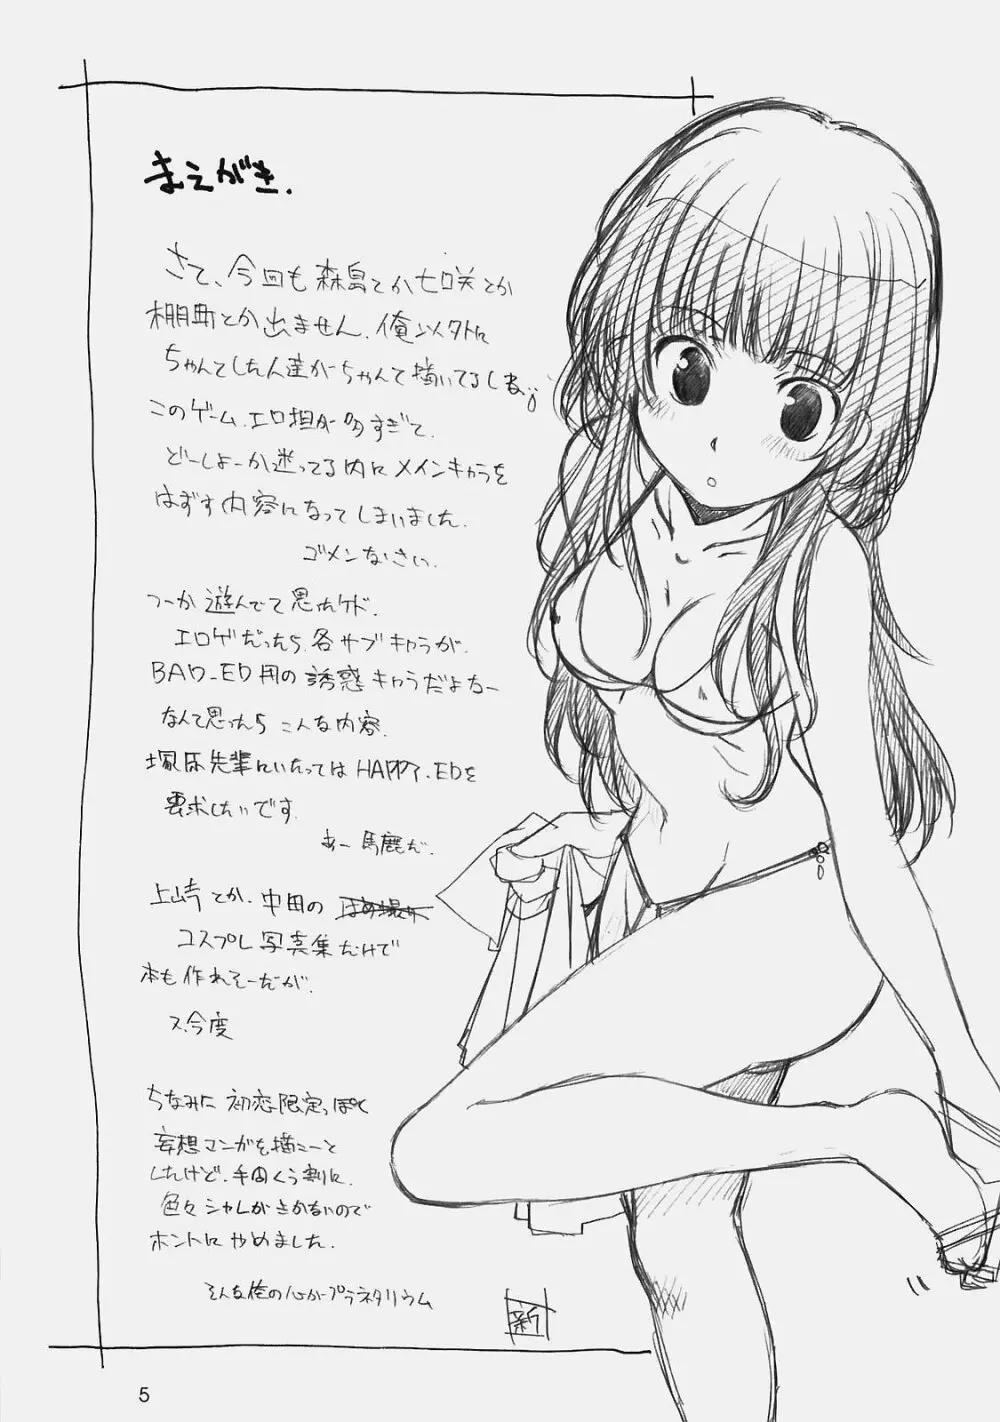 まえがき.
さて、今回も森島とか七咲とか
棚町とか出ません。俺以外に
ちゃんとした人達がちゃんと描いてるしねっ
このゲーム、エロ担が多すぎて、
どーしよーか迷ってる内にメインキャラを
はずす内容になってしまいました。
ゴメンなさい。
つーか遊んでて思ったケド、
エロゲだったら各サブキャラが、
BAD_ED用の誘惑キャラだよなー
なんて思ったらこんな内容。
塚原先輩にいたってはHAPPY_EDを
要求したいです。
あー馬鹿だ。
上崎とか、中田の
コスプレ写真集だけで
本も作れそーだが、
ス、今度
ちなみに初恋限定っぽく
妄想マンガを描こーと
したけど、手間くう割に、
色々シャレがきかないので
ホントにやめました。
そんな俺の心がプラネタリウム
新
5